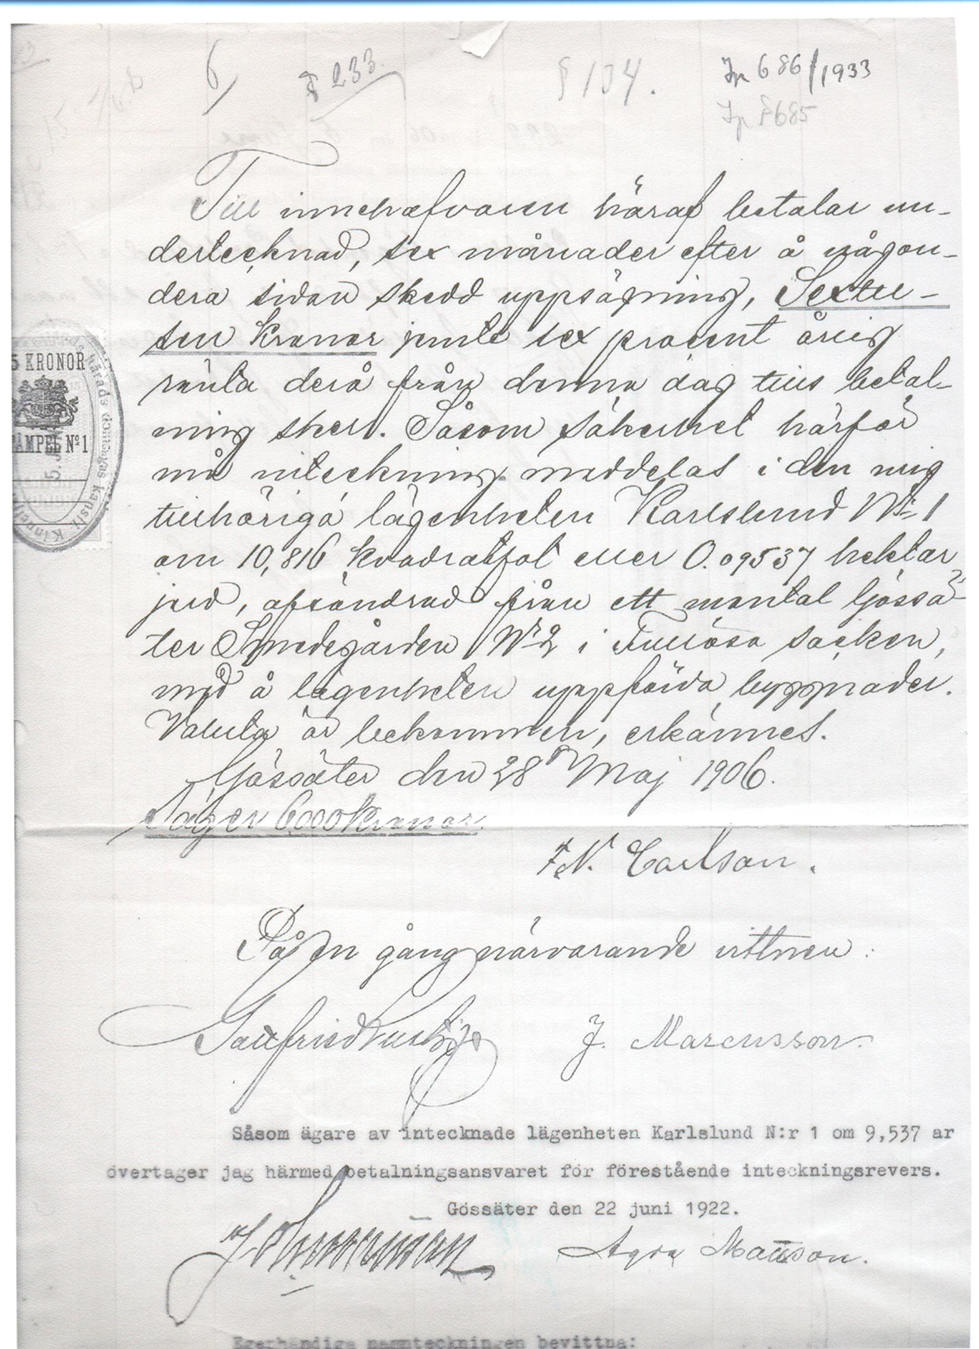 6
§ 233.
§ 134.
Ip 686/1933
Ip § 685
Till innehafvaren häraf betalar un-
dertecknad, sex månader efter å någon-
dera sidan skedd uppsägning, Sextu-
sen kronor jemte sex procent årlig
ränta derå från denna dag tills betal-
ning sker. Såsom säkerhet härför
må inteckning meddelas i den mig
tillhöriga lägenheten Karlslund No 1
om 10,816 kvadratfot eller 0.09537 hektar
jord, afsöndrad från ett mantal Gössä-
ter Smedegården No 2 i Fullösa socken,
med å lägenheten uppförda byggnader.
Valuta är bekommen, erkännes.
Gössäter den 28 Maj 1906.
Säger 6000 Kronor.
5 KRONOR
STÄMPEL No 1
F. N. Carlson.
På en gång närvarande vittnen:
J. Marcusson.
Såsom ägare av intecknade lägenheten Karlslund N:r 1 om 9,537 ar
övertager jag härmed betalningsansvaret för förestående inteckningsrevers.
Gössäter den 22 juni 1922.
Mattson.
Egenhändiga namnteckningen bevittna: